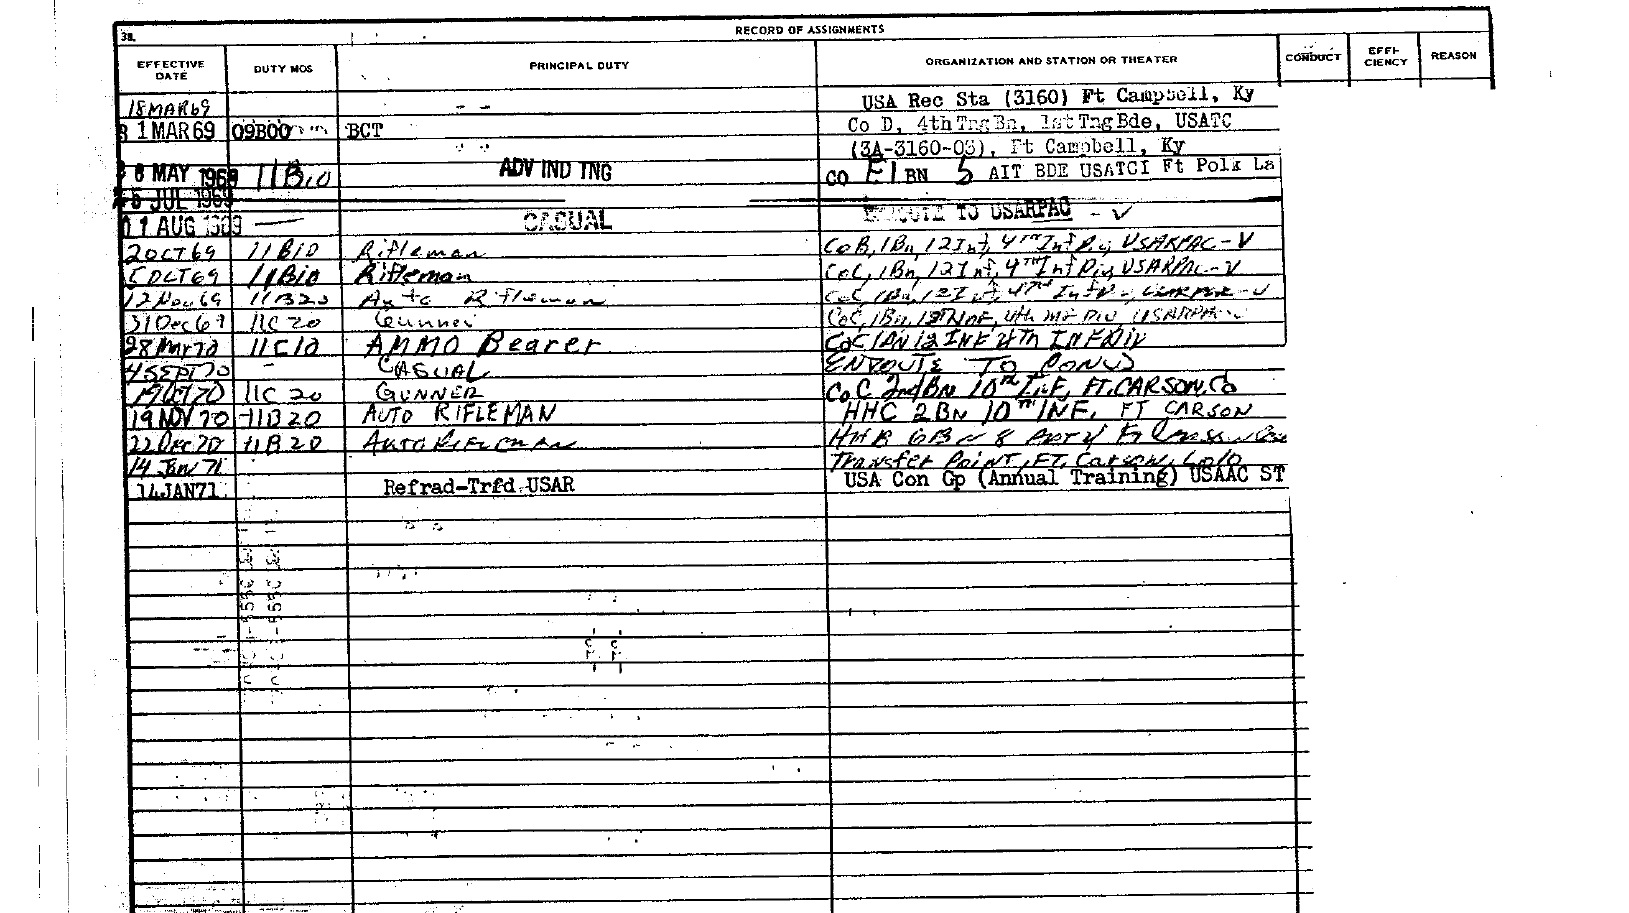 38. RECORD OF ASSIGNMENTS
EFFECTIVE DATE DUTY MOS PRINCIPAL DUTY ORGANIZATION AND STATION OR THEATER CONDUCT EFFI-CIENCY REASON
18 MAR 69 - - USA Rec Sta (3160) Ft Campbell, Ky
1 MAR 69 09B00 BCT Co D, 4th Tng Bn, 1st Tng Bde, USATC
(3A-3160-03), Ft Campbell, Ky
MAY 1969 11B10 ADV IND TNG CO E 1 BN 5 AIT BDE USATCI Ft Polk La
JUL 1969
1 AUG 1969 — CASUAL ENROUTE TO USARPAC - V
2 OCT 69 11B10 Rifleman Co B, 1 Bn, 12 Inf, 4TH Inf Div, USARPAC - V
5 OCT 69 11B10 Rifleman Co C, 1 Bn, 12 Inf, 4TH Inf Div, USARPAC - V
12 Nov 69 11B20 Auto Rifleman Co C, 1 Bn, 12 Inf, 4TH Inf Div, USARPAC - V
31 Dec 69 11C20 Gunner Co C, 1 Bn, 12th INF, 4th Inf Div USARPAC
28 Mar 70 11C10 AMMO Bearer Co C 1 BN 12 INF 4TH INF DIV
4 SEPT 70 - CASUAL ENROUTE TO CONUS
19 OCT 70 11C 20 GUNNER Co C 2nd BN 10TH INF, FT. CARSON, CO
19 NOV 70 11B20 AUTO RIFLEMAN HHC 2 BN 10TH INF, FT CARSON
22 DEC 70 11B20 AUTO RIFLEMAN 6 BN 8 ARTY Ft Carson
14 Jan 71 Transfer Point, FT. Carson, Colo
14 JAN 71 Refrad-Trfd USAR USA Con Gp (Annual Training) USAAC ST